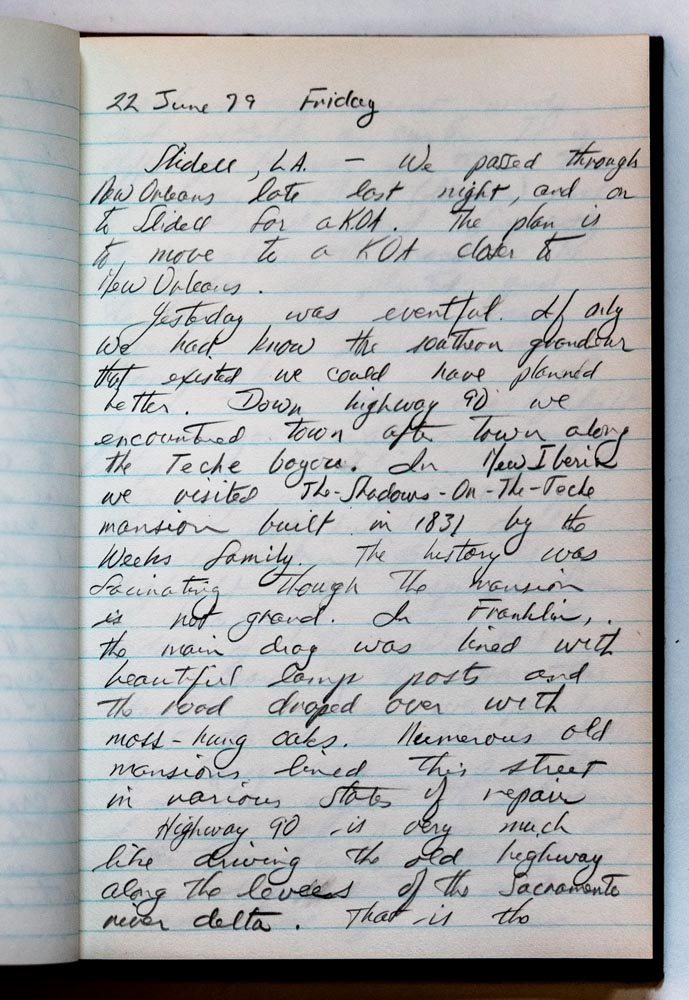 22 June 79 Friday
Slidell, LA. — We passed through
New Orleans late last night, and on
to Slidell for a KOA. The plan is
to move to a KOA closer to
New Orleans.
Yesterday was eventful. If only
we had know the southern grandeur
that existed we could have planned
better. Down highway 90 we
encountered town after town along
the Teche bayou. In New Iberia
we visited The-Shadows-On-The-Teche
mansion built in 1831 by the
Weeks family. The history was
facinating though the mansion
is not grand. In Franklin,
the main drag was lined with
beautiful lamp posts and
the road draped over with
moss-hung oaks. Numerous old
mansions lined this street
in various states of repair
Highway 90 is very much
like driving the old highway
along the levees of the Sacramento
river delta. That is the